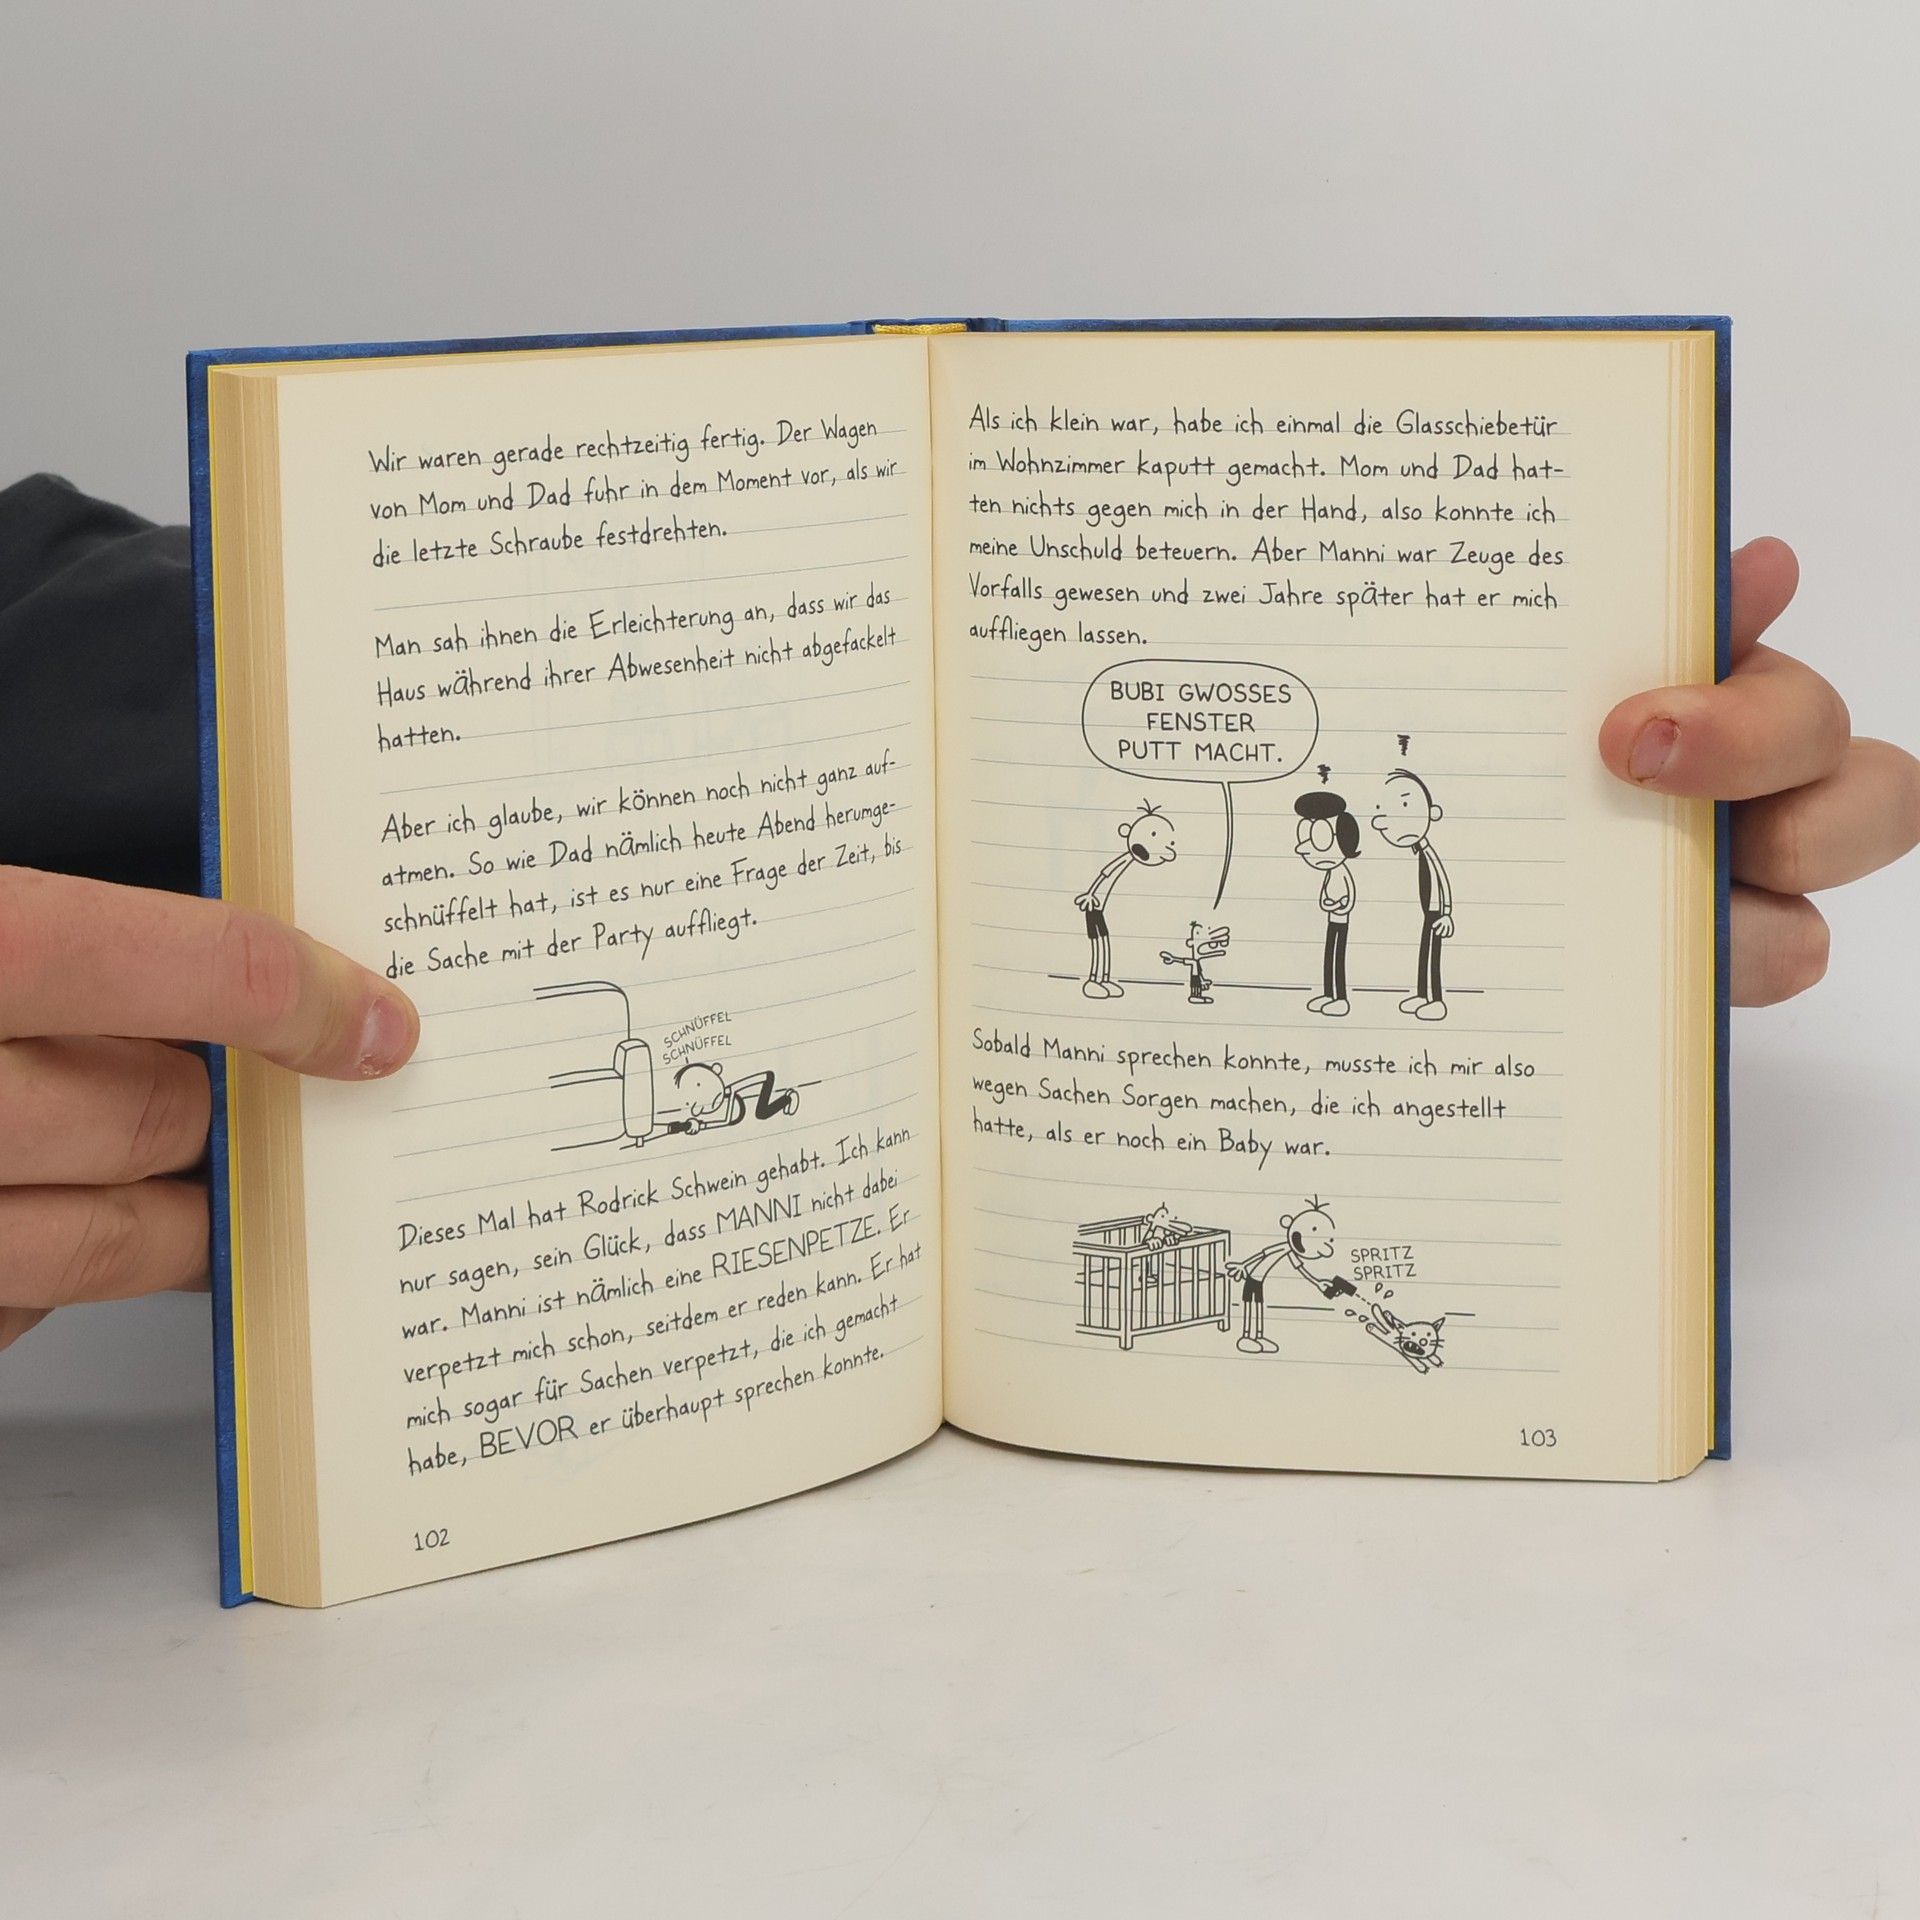 Wir waren gerade rechtzeitig fertig. Der Wagen
von Mom und Dad fuhr in dem Moment vor, als wir
die letzte Schraube festdrehten.
Man sah ihnen die Erleichterung an, dass wir das
Haus während ihrer Abwesenheit nicht abgefackelt
hatten.
Aber ich glaube, wir können noch nicht ganz auf-
atmen. So wie Dad nämlich heute Abend herumge-
schnüffelt hat, ist es nur eine Frage der Zeit, bis
die Sache mit der Party auffliegt.
SCHNÜFFEL
SCHNÜFFEL
Dieses Mal hat Rodrick Schwein gehabt. Ich kann
nur sagen, sein Glück, dass MANNI nicht dabei
war. Manni ist nämlich eine RIESENPETZE. Er
verpetzt mich schon, seitdem er reden kann. Er hat
mich sogar für Sachen verpetzt, die ich gemacht
habe, BEVOR er überhaupt sprechen konnte.
102
Als ich klein war, habe ich einmal die Glasschiebetür
im Wohnzimmer kaputt gemacht. Mom und Dad hat-
ten nichts gegen mich in der Hand, also konnte ich
meine Unschuld beteuern. Aber Manni war Zeuge des
Vorfalls gewesen und zwei Jahre später hat er mich
auffliegen lassen.
BUBI GWOSSES
FENSTER
PUTT MACHT.
Sobald Manni sprechen konnte, musste ich mir also
wegen Sachen Sorgen machen, die ich angestellt
hatte, als er noch ein Baby war.
SPRITZ
SPRITZ
103